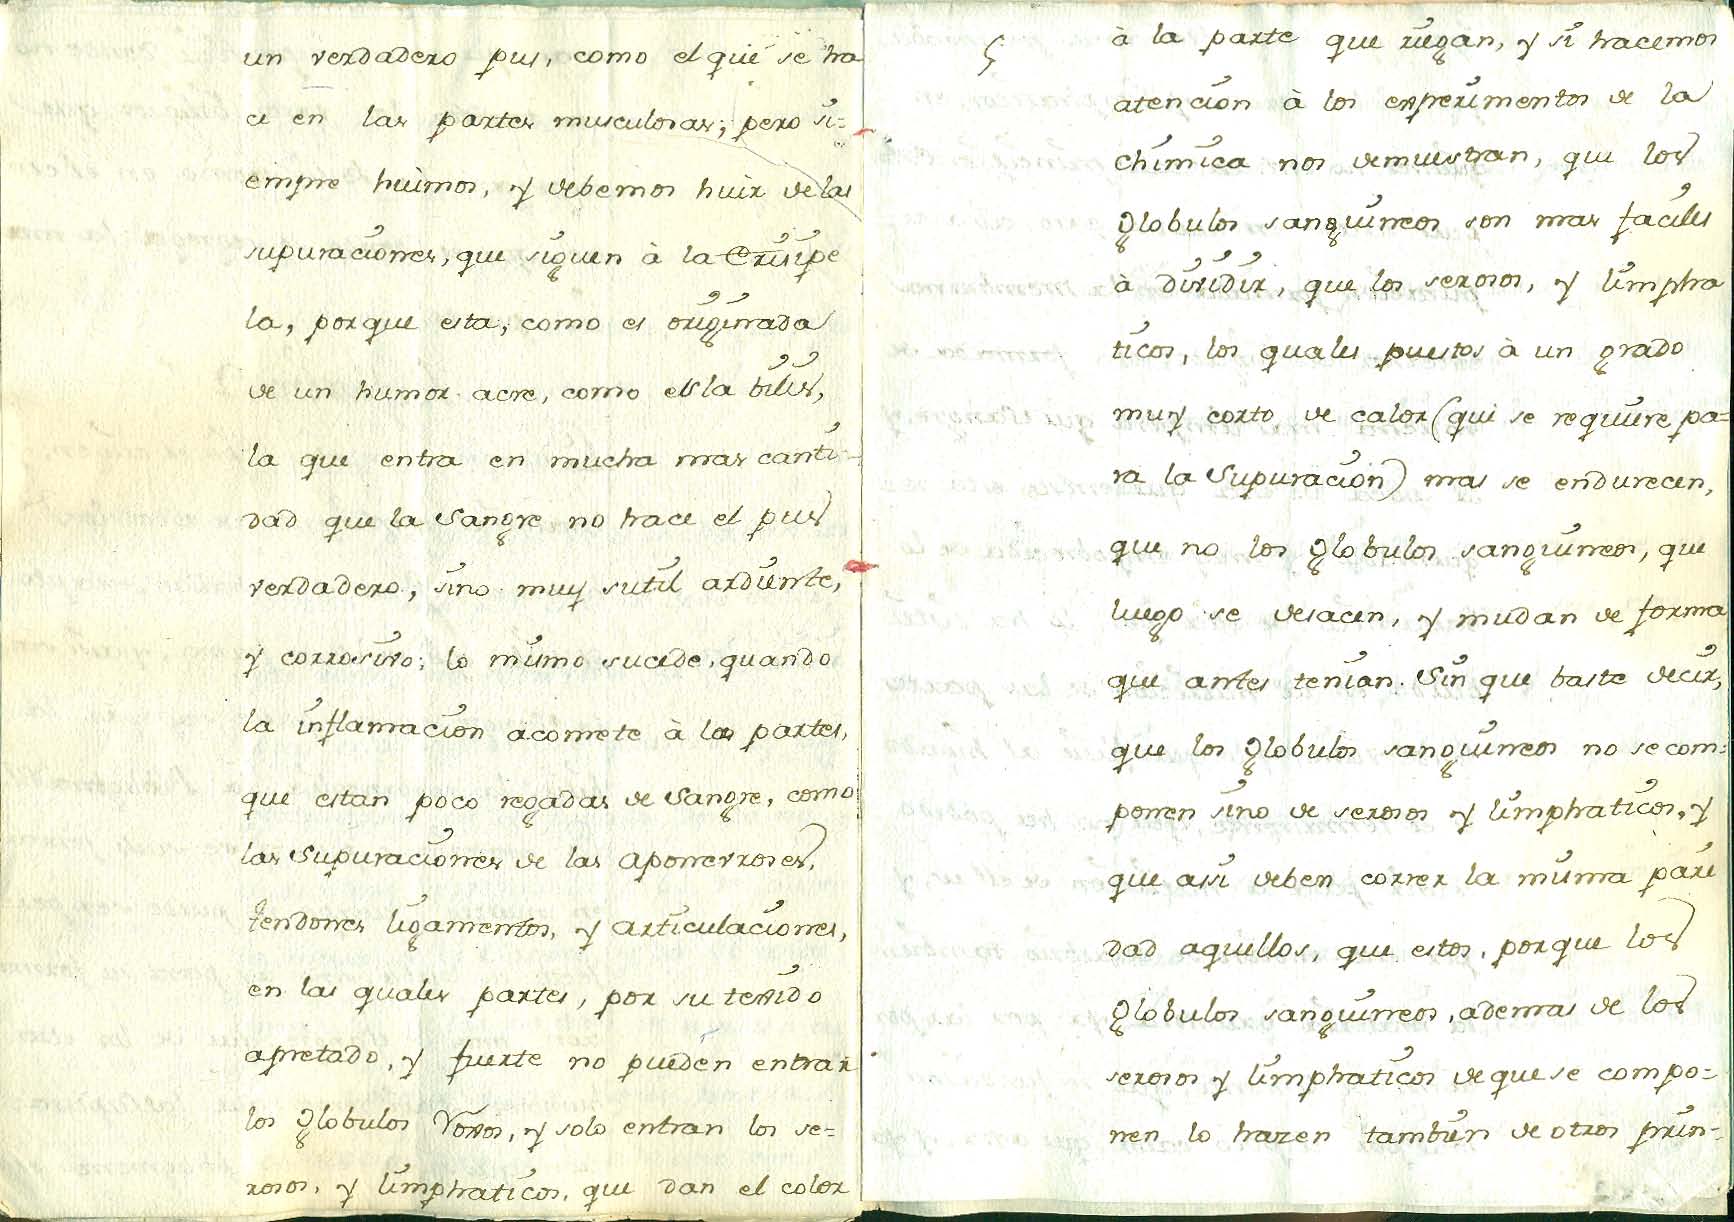 un verdadero pus, como el que se ha
ce en las partes musculosas; pero si=
empre huimos, y debemos huir de las
supuraciones, que siguen à la Erisipe
la, porque esta, como es originada
de un humor acre, como es la bilis,
la que entra en mucha mas canti-
dad que la Sangre no hace el pus
verdadero, sino muy sutil ardiente,
y corrosivo; lo mismo sucede, quando
la inflamacion acomete à las partes,
que estan poco regadas de Sangre, como
las Supuraciones de las aponevroses,
tendones ligamentos, y articulaciones,
en las quales partes, por su texido
apretado, y fuerte no pueden entrar
los globulos roxos, y solo entran los se=
rosos, y limphaticos, que dan el color
5
à la parte que riegan, y si hacemos
atencion à los experimentos de la
chimica nos demuestran, que los
globulos sanguineos son mas faciles
à dividir, que los serosos, y limpha
ticos, los quales puestos à un grado
muy corto de calor (qui se requiere pa=
ra la Supuracion) mas se endurecen,
que no los globulos sanguineos, que
luego se desacen, y mudan de forma
que antes tenian. Sin que baste decir,
que los globulos sanguineos no se com=
ponen sino de serosos y limphaticos, y
que asi deben correr la misma pari
dad aquellos, que estos, porque los
globulos sanguineos, ademas de los
serosos y limphaticos de que se compo=
nen lo hazen tambien de otros prin=